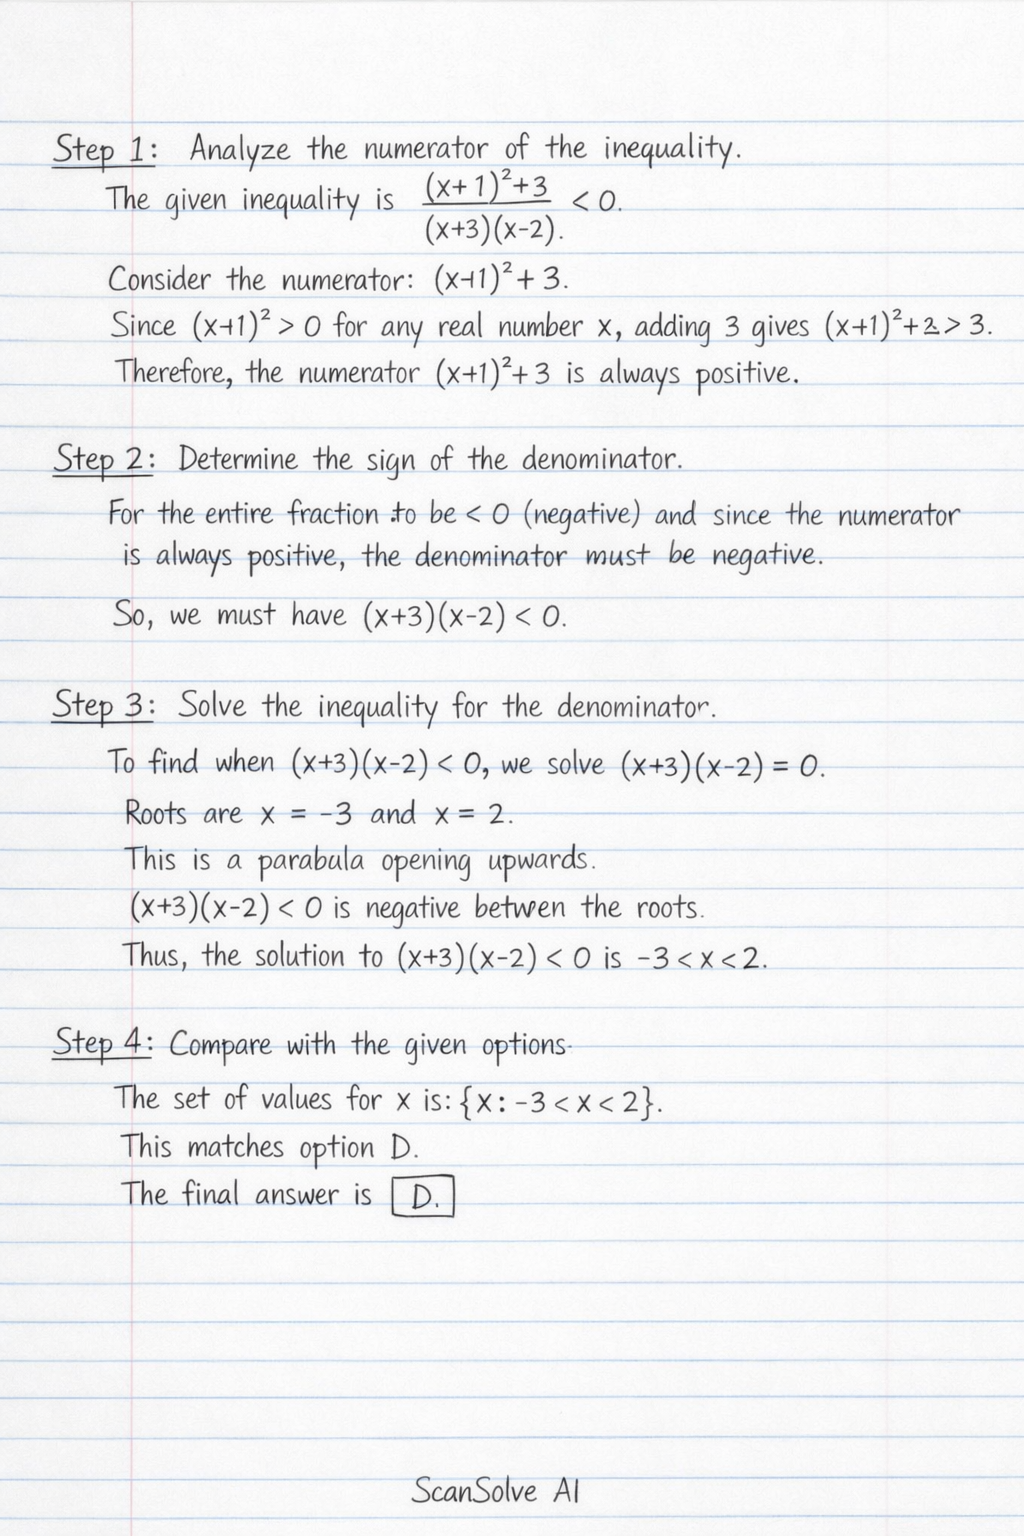 Step 1: Analyze the numerator of the inequality.
The given inequality is (x+1)²+3 / (x+3)(x-2). < 0.
Consider the numerator: (x+1)²+3.
Since (x+1)² > 0 for any real number x, adding 3 gives (x+1)²+2 > 3.
Therefore, the numerator (x+1)²+3 is always positive.
Step 2: Determine the sign of the denominator.
For the entire fraction to be < 0 (negative) and since the numerator
is always positive, the denominator must be negative.
So, we must have (x+3)(x-2) < 0.
Step 3: Solve the inequality for the denominator.
To find when (x+3)(x-2) < 0, we solve (x+3)(x-2) = 0.
Roots are x = -3 and x = 2.
This is a parabula opening upwards.
(x+3)(x-2) < 0 is negative betwen the roots.
Thus, the solution to (x+3)(x-2) < 0 is -3 < x < 2.
Step 4: Compare with the given options.
The set of values for x is: {x: -3 < x < 2}.
This matches option D.
The final answer is D.
ScanSolve AI